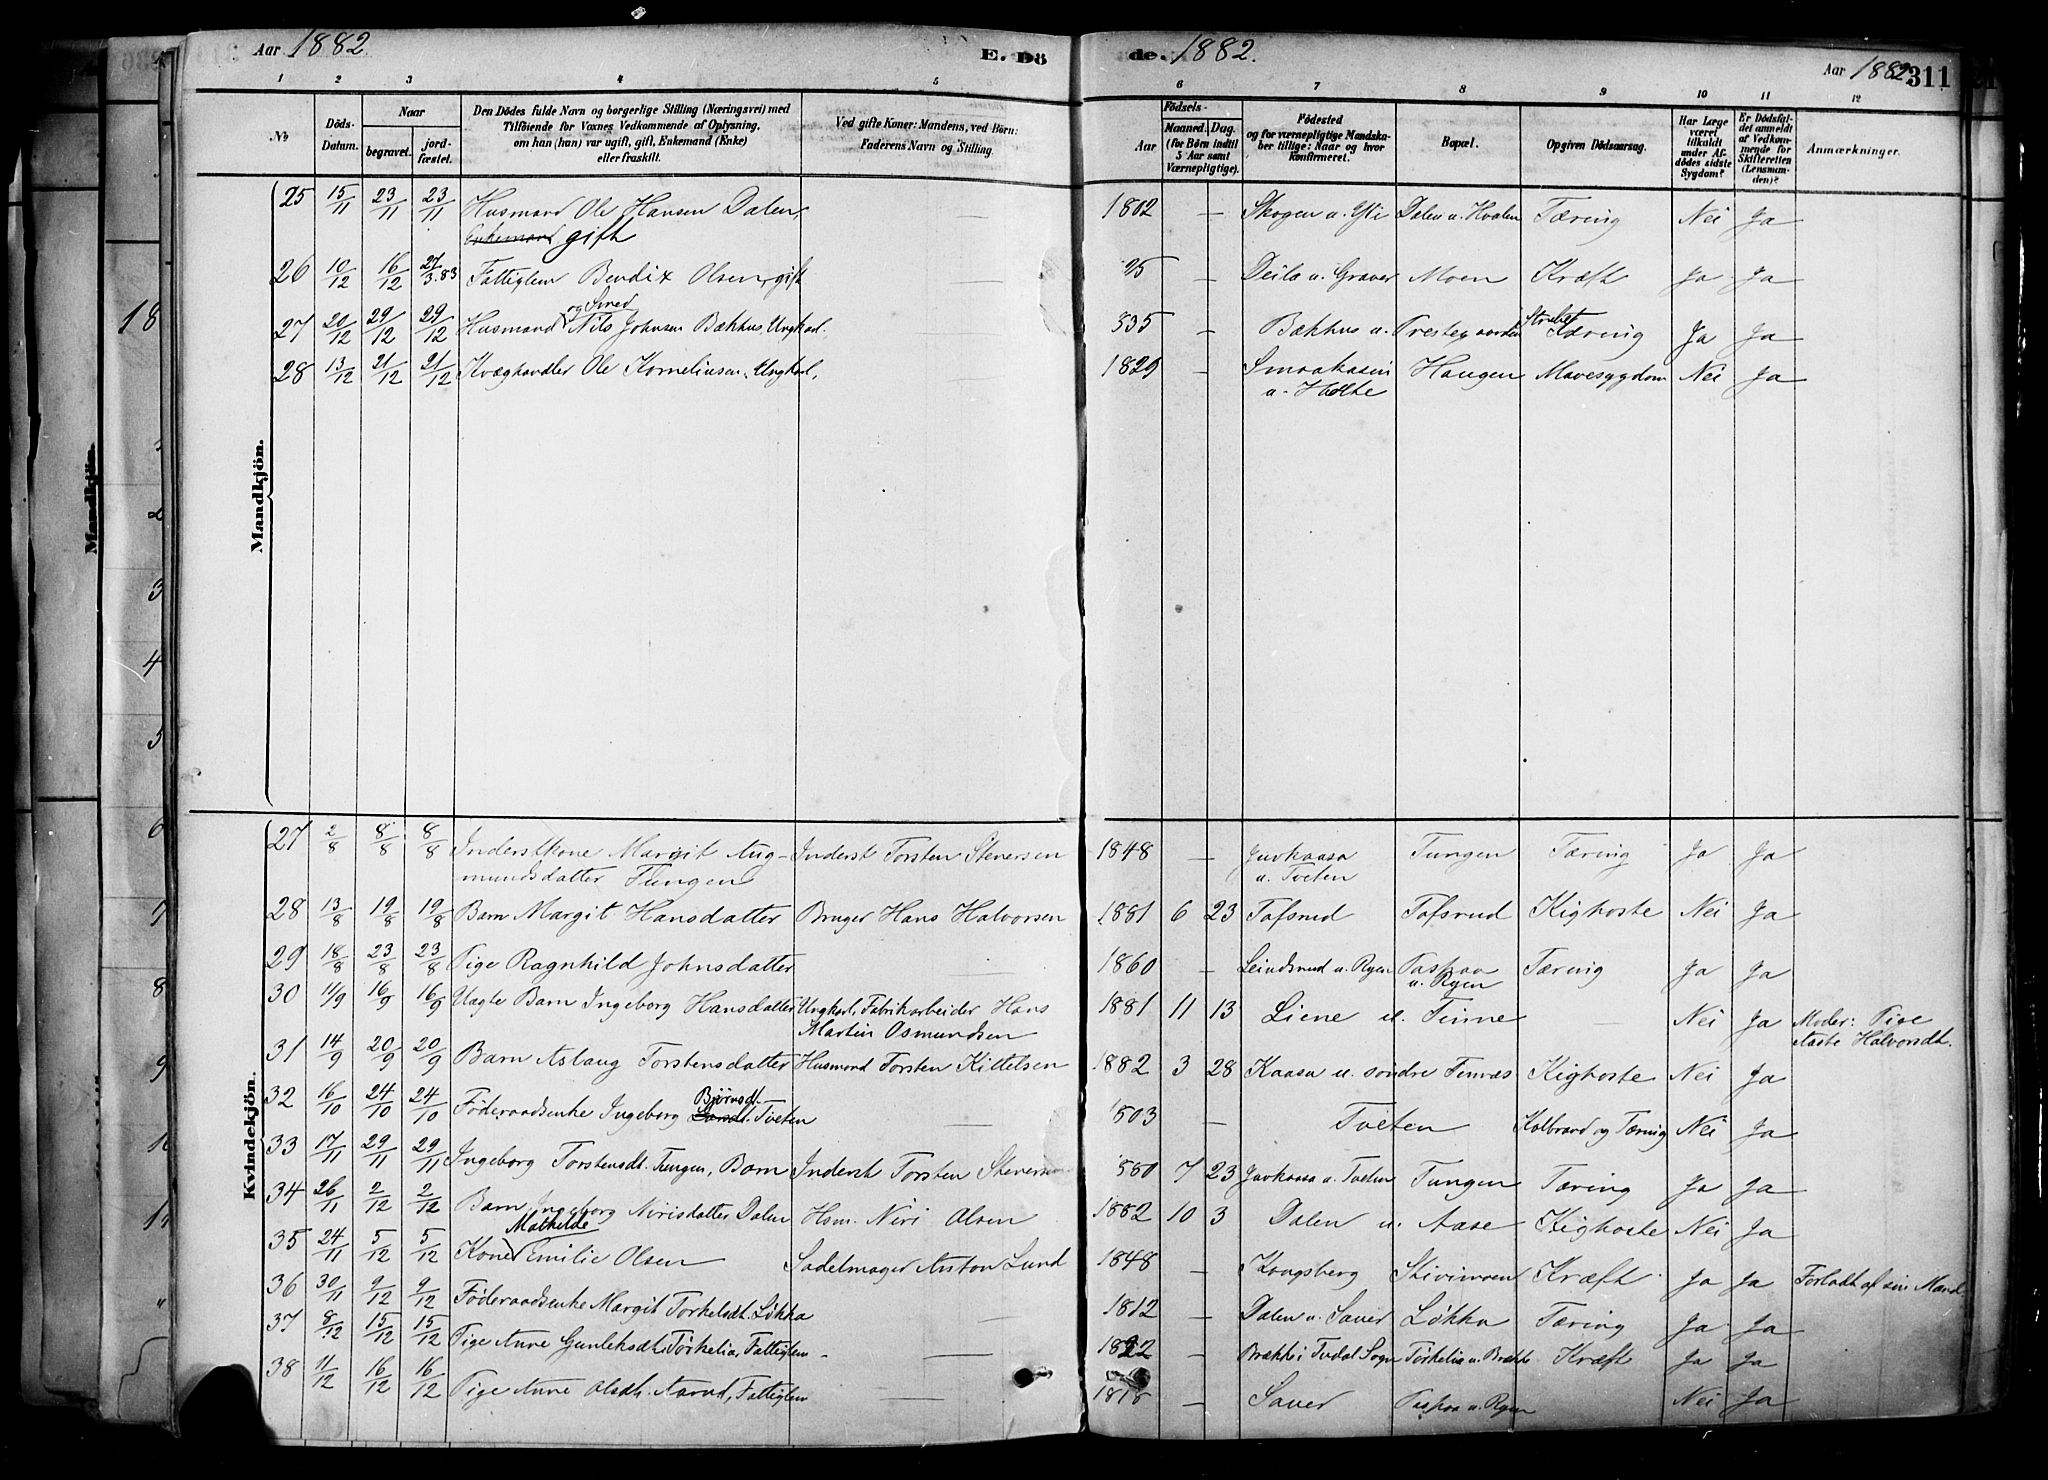 Aar 1882. E. Dö
de. 1882. Aar 1882 311
1 2 3 4 5 6 7 8 9 10 11 12
No Döds-Datum. Naar begravet. jordfæstet.
Den Dödes fulde Navn og borgerlige Stilling (Næringsvei) med Tilföiende for Voxnes Vedkommende af Oplysning, om han (hun) var ugift, gift, Enkemand (Enke) eller fraskilt.
Ved gifte Koner: Mandens, ved Börn: Faderens Navn og Stilling.
Födsels- Aar Maaned. Dag. (for Börn indtil 5 Aar samt Værnepligtige).
Födested og for værnepligtige Mandskaber tillige: Naar og hvor konfirmeret.
Bopæl.
Opgiven Dödsaarsag.
Har Læge været tilkaldt under Afdödes sidste Sygdom?
Er Dödsfaldet anmeldt af Vedkommende for Skifteretten (Lensmanden)?
Anmærkninger.
Mandkjön.
25 15/11 23/11 23/11 Husmand Ole Hansen Dalen, — 1802 — Skogen u. Yli Dalen u. Hvalen Tæring Nei Ja
Enkemand gift
26 10/12 16/12 27/3.83 Fattiglem Bendix Olsen, gift — 25 — Deila u. Graver Moen Kræft Ja Ja
og Smed
27 20/12 29/12 29/12 Husmand Nils Johnsen Bækhus, Ungkarl. — 535 — Bækhus u. Prestegaarden Strube Tæring Ja Ja
28 13/12 21/12 21/12 Kvæghandler Ole Korneliusen, Ungkarl, — 1829 Haugen Mavesygdom Nei Ja
u. Holte
Kvindekjön.
27 2/8 8/8 8/8 Inderstkone Margit Aug- Inderst Torsten Stenersen 1848 — Juvkaasa Tungen Tæring Ja Ja
mundsdatter Tungen u. Tveten
28 13/8 19/8 19/8 Barn Margit Hansdatter Bruger Hans Halvorsen 1881 6 23 Tofsrud Tofsrud Kighoste Nei Ja
29 18/8 23/8 23/8 Pige Ragnhild Johnsdatter — 1860 — Leindsrud u. Ryen Taspaa Tæring Ja Ja
u. Ryen
30 11/9 16/9 16/9 Uægte Barn Ingeborg Hansdatter Ungkarl, Fabrikarbeider Hans 1881 11 13 Liene u. Tinne — Nei Ja Moder: Pige
Martin Osmundsen Aaste Halvorsdt.
31 14/9 20/9 20/9 Barn Aslaug Torstensdatter Husmand Torsten Kittelsen 1882 3 28 Kaasa u. søndre Tinnæs Kighoste Nei Ja
Bjørnsdt.
32 16/10 24/10 24/10 Føderaadsenke Ingeborg Tveten — 503 — Tveten Kolbrand og Tæring Nei Ja
33 17/11 29/11 29/11 Ingeborg Torstensdt. Tungen, Barn Inderst Torsten Stenersen 880 7 23 Juvkaasa u. Tveten Tungen Tæring Ja Ja
34 26/11 2/12 2/12 Barn Ingeborg Nirisdatter Dalen Hsm. Niri Olsen 1882 10 3 Dalen u. Aase Kighoste Nei Ja
Mathilde
35 24/11 5/12 5/12 Kone Emilie Olsen Sadelmager Anton Lund 1848 — Kongsberg Stivimoen Kræft Ja Ja Forladt af sin Mand
36 30/11 9/12 9/12 Føderaadsenke Margit Torkelsdt. Løkka — 1812 — Dalen u. Sauer Løkka Tæring Ja Ja
37 8/12 15/12 15/12 Pige Anne Gunleksdt. Tørkelia, Fattiglem — 1822 — Brække i Tudal Sogn Tørkelia u. Brække Kræft Ja Ja
38 11/12 16/12 16/12 Pige Anne Olsdt. Aarud, Fattiglem — 1818 — Sauer Taspaa u. Ryen Nei Ja